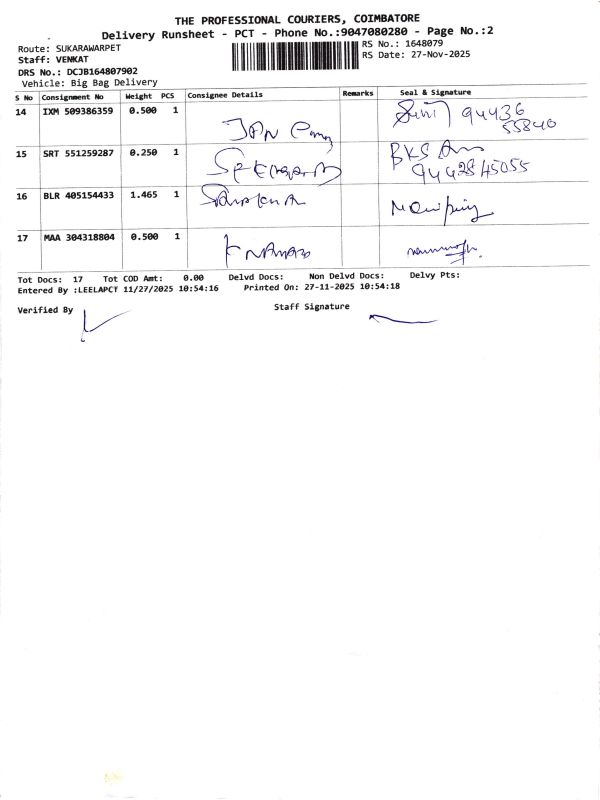 THE PROFESSIONAL COURIERS, COIMBATORE
Delivery Runsheet - PCT - Phone No.:9047080280 - Page No.:2
Route: SUKARAWARPET
RS No.: 1648079
Staff: VENKAT
RS Date: 27-Nov-2025
DRS No.: DCJB164807902
Vehicle: Big Bag Delivery
S No Consignment No Weight PCS Consignee Details Remarks Seal & Signature
14 IXM 509386359 0.500 1 94436
JAN 55840
15 SRT 551259287 0.250 1 BKS
9442845055
16 BLR 405154433 1.465 1
17 MAA 304318804 0.500 1
Tot Docs: 17 Tot COD Amt: 0.00 Delvd Docs: Non Delvd Docs: Delvy Pts:
Entered By :LEELAPCT 11/27/2025 10:54:16 Printed On: 27-11-2025 10:54:18
Verified By Staff Signature